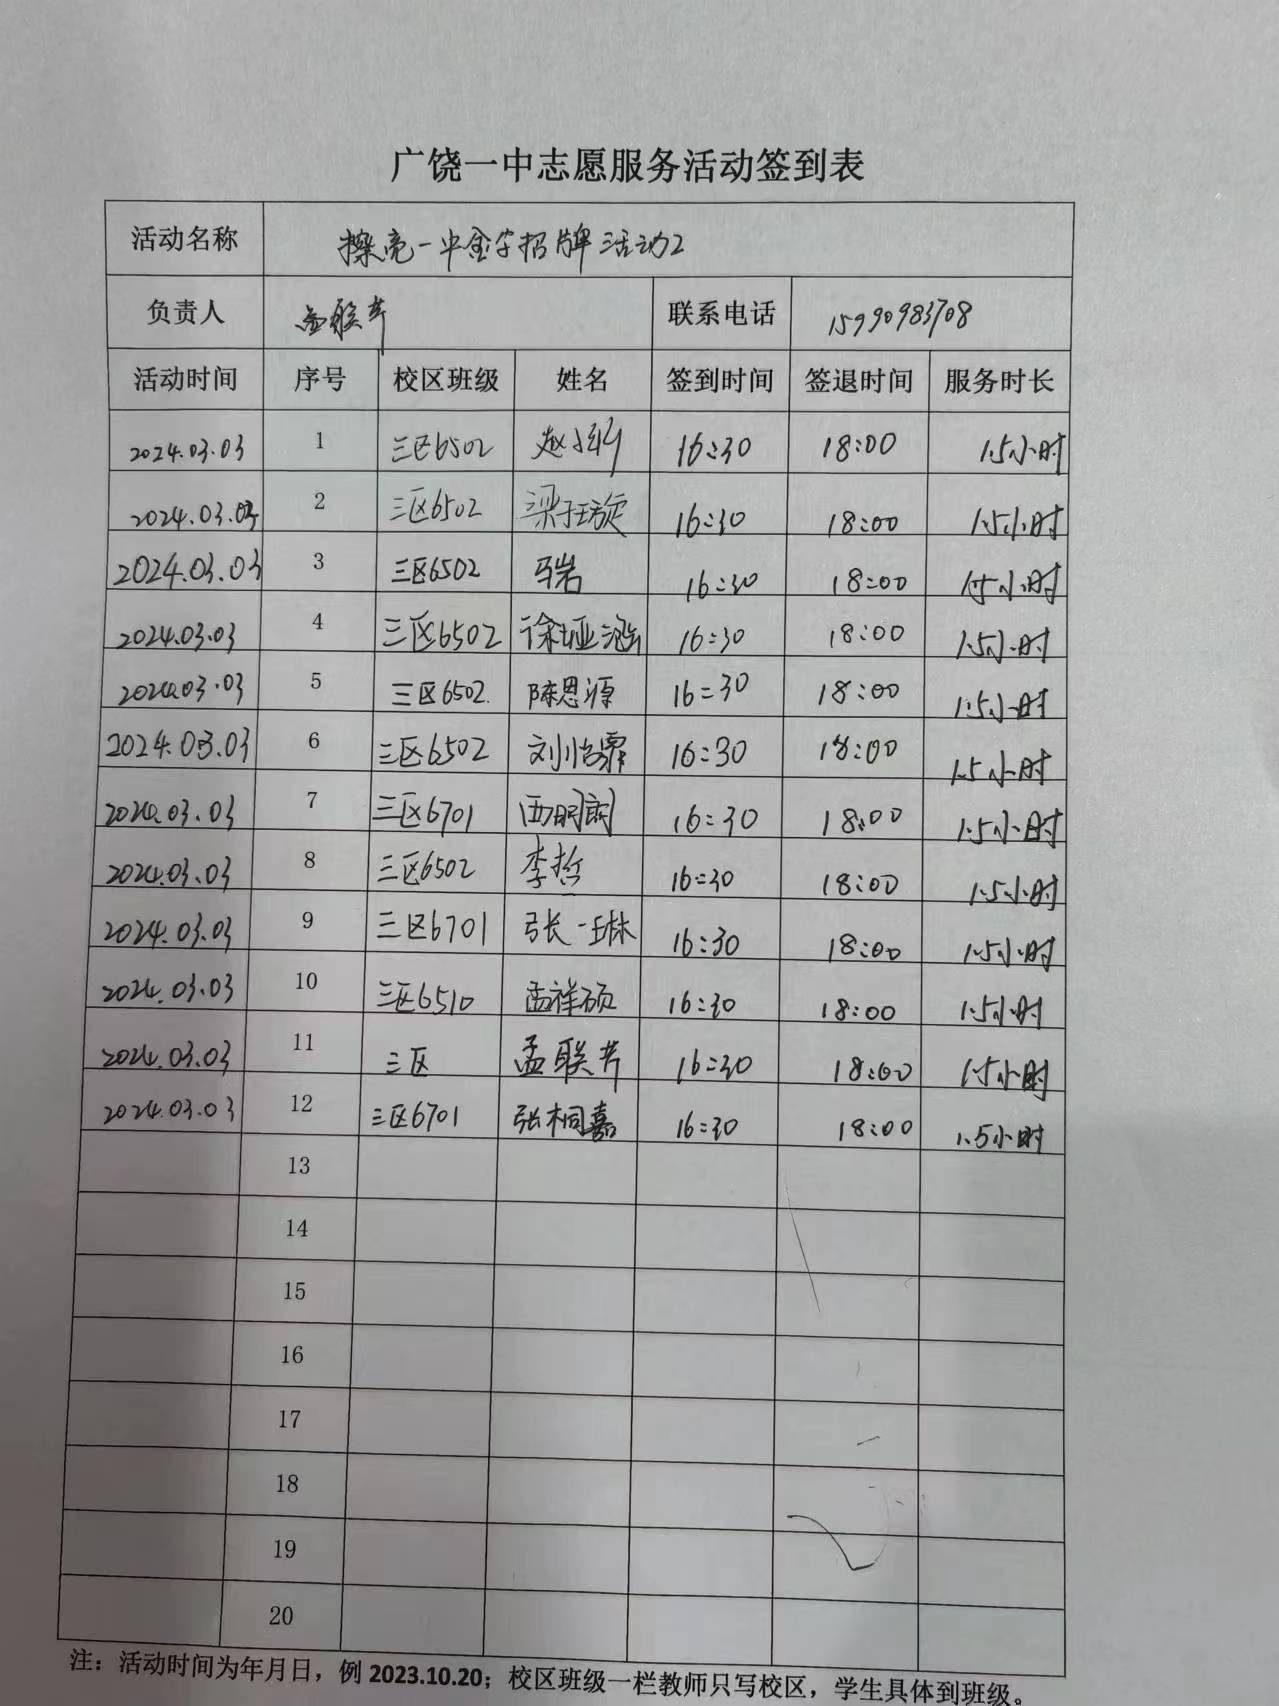 广饶一中志愿服务活动签到表
活动名称 擦亮一中金字招牌活动2
负责人 孟联芹 联系电话 15990983708
活动时间 序号 校区班级 姓名 签到时间 签退时间 服务时长
2024.03.03 1 三区6502 赵 16:30 18:00 1.5小时
2024.03.03 2 三区6502 梁 16:30 18:00 1.5小时
2024.03.03 3 三区6502 马岩 16:30 18:00 1.5小时
2024.03.03 4 三区6502 徐垭涵 16:30 18:00 1.5小时
2024.03.03 5 三区6502. 陈恩源 16:30 18:00 1.5小时
2024.03.03 6 三区6502 刘怡霏 16:30 18:00 1.5小时
2024.03.03 7 三区6701 西明阔 16:30 18:00 1.5小时
2024.03.03 8 三区6502 李哲 16:30 18:00 1.5小时
2024.03.03 9 三区6701 张一琳 16:30 18:00 1.5小时
2024.03.03 10 三区6510 孟祥硕 16:30 18:00 1.5小时
2024.03.03 11 三区 孟联芹 16:30 18:00 1.5小时
2024.03.03 12 三区6701 张桐嘉 16:30 18:00 1.5小时
13
14
15
16
17
18
19
20
注：活动时间为年月日，例 2023.10.20；校区班级一栏教师只写校区，学生具体到班级。